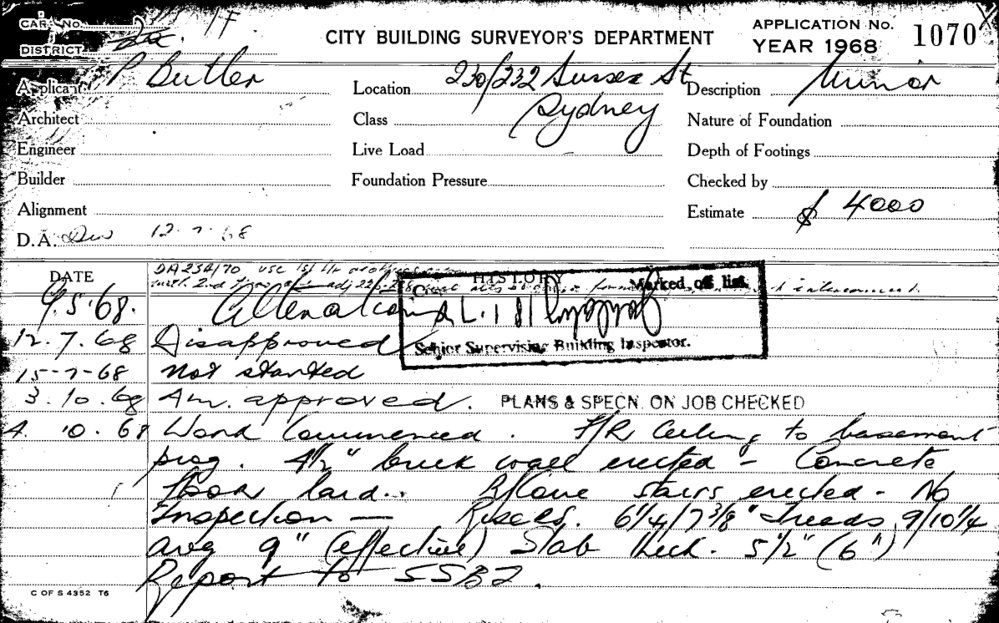 CARD No.
DISTRICT
CITY BUILDING SURVEYOR'S DEPARTMENT
APPLICATION No. 1070
YEAR 1968
Applicant P Butler
Location 230/232 Sussex St
Sydney
Description Minor
Architect
Class
Nature of Foundation
Engineer
Live Load
Depth of Footings
Builder
Foundation Pressure
Checked by
Alignment
Estimate $ 4000
D.A. Dis 12-7-68
DATE
HISTORY
DA 234/70 use 1st
Marked off list
9.5.68. Alterations
Senior Supervising Building Inspector.
12.7.68 Disapproved
15-7-68 Not started
3.10.68 Am. approved. PLANS & SPECN. ON JOB CHECKED
4.10.68 Work Commenced. F/R Ceiling to basement
prog. 4½" brick wall erected - Concrete
floor laid.. Above stairs erected - No
Inspection — Risers. 6¼/7⅜" treads 9/10¼
avg 9" (effective) Slab thick. 5½" (6")
Report to SSBI.
C OF S 4352 T6